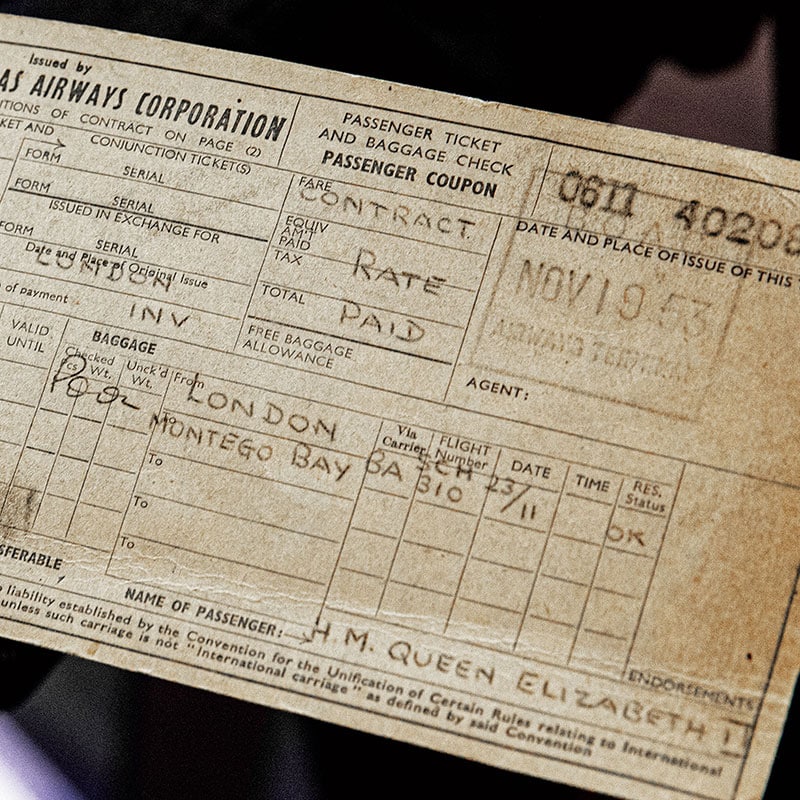 Issued by
AS AIRWAYS CORPORATION
ITIONS OF CONTRACT ON PAGE (2)
KET AND CONJUNCTION TICKET(S)
FORM SERIAL
FORM SERIAL
ISSUED IN EXCHANGE FOR
FORM SERIAL
Date and Place of Original Issue
LONDON
of payment
INV
PASSENGER TICKET
AND BAGGAGE CHECK
PASSENGER COUPON
FARE
CONTRACT
EQUIV
AMT
PAID
TAX
RATE
TOTAL
PAID
FREE BAGGAGE
ALLOWANCE
0611 40208
DATE AND PLACE OF ISSUE OF THIS
NOV 19 53
AIRWAYS TERMINAL
AGENT:
VALID
UNTIL
BAGGAGE
Checked
Pcs Wt.
Unck'd
Wt.
From
LONDON
To
MONTEGO BAY
To
To
To
Via
Carrier
FLIGHT
Number
DATE
TIME
RES.
Status
BA
SCH
310
23/11
OK
SFERABLE
NAME OF PASSENGER:
H.M. QUEEN ELIZABETH II
ENDORSEMENTS
liability established by the Convention for the Unification of Certain Rules relating to International
unless such carriage is not "International carriage" as defined by said Convention